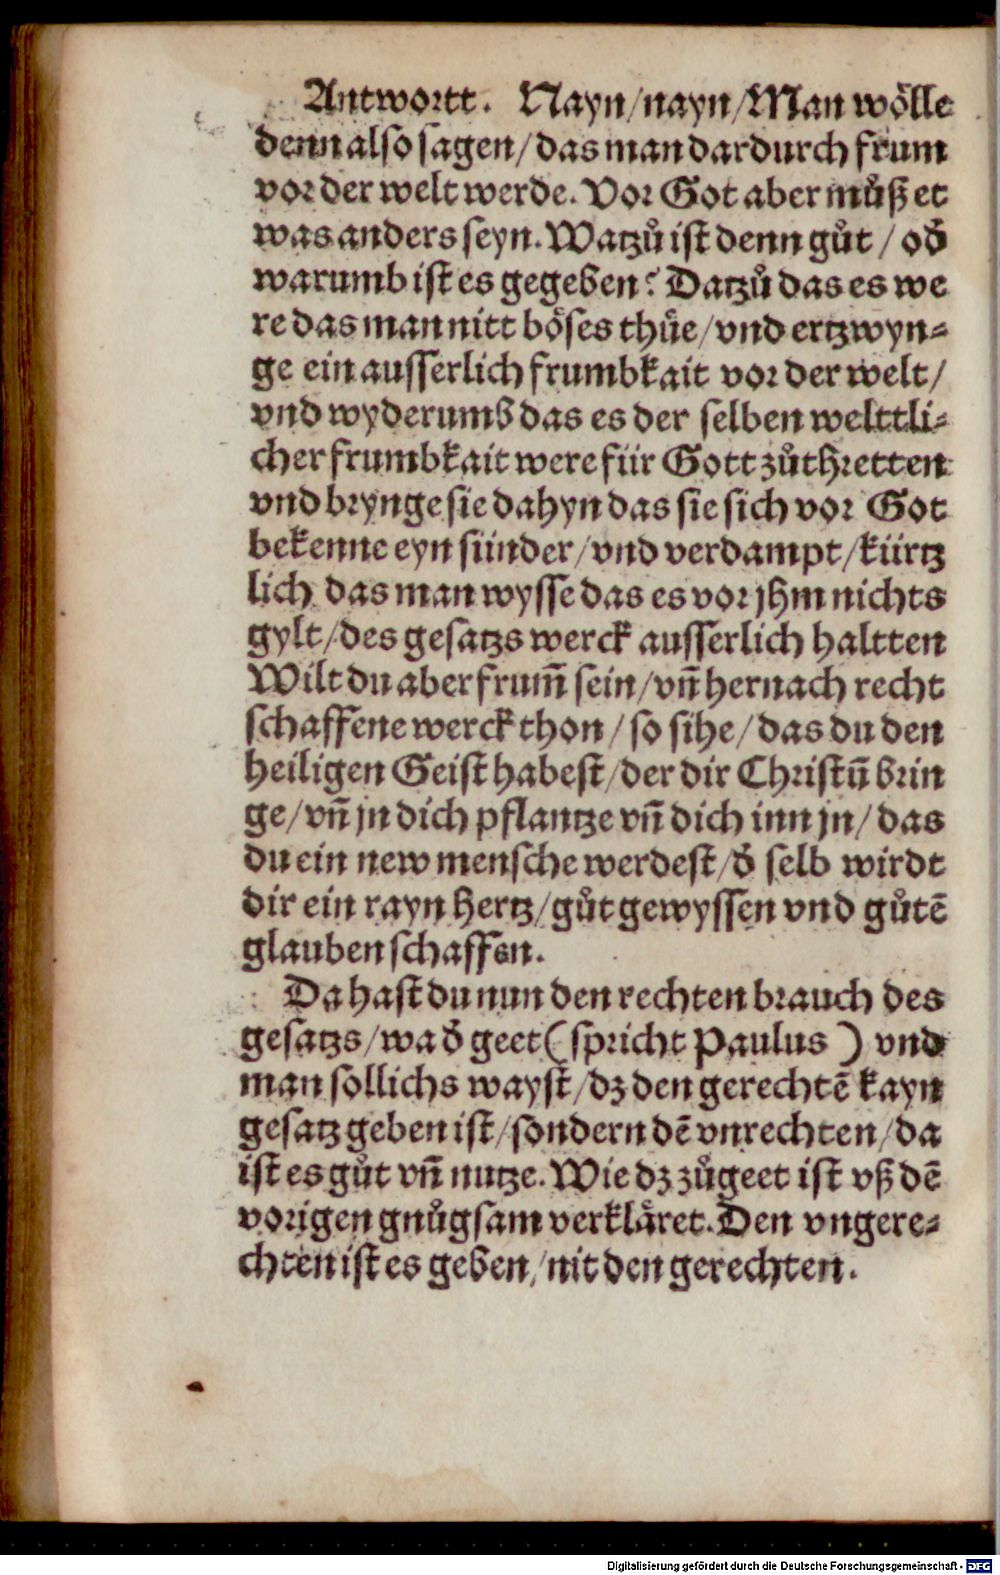 Antwortt. Nayn/nayn/Man wölle
denn also sagen/das man dardurch frum
vor der welt werde. Vor Got aber můß et
was anders seyn. Watzů ist denn gůt / oď
warumb ist es gegeben? Datzů das es we
re das man nitt böses thůe/vnd ertzwyn⸗
ge ein ausserlich frumbkait vor der welt/
vnd wyderumb das es der selben welttli⸗
cher frumbkait were für Gott zůthretten
vnd brynge sie dahyn das sie sich vor Got
bekenne eyn sünder/vnd verdampt/kürtz
lich das man wysse das es vor jhm nichts
gylt/des gesatzs werck ausserlich haltten
Wilt du aber frum̄ sein/vn̄ hernach recht
schaffene werck thon/so sihe/das du den
heiligen Geist habest/der dir Christū brin
ge/vn̄ jn dich pflantze vn̄ dich inn jn/das
du ein new mensche werdest/ď selb wirdt
dir ein rayn hertz/gůt gewyssen vnd gůtē
glauben schaffen.
Da hast du nun den rechten brauch des
gesatzs/wa ď geet (spricht Paulus) vnd
man sollichs wayst/dz den gerechtē kayn
gesatz geben ist/sondern dē vnrechten/da
ist es gůt vn̄ nutze. Wie dz zůgeet ist vß dē
vorigen gnůgsam verkläret. Den vngere⸗
chten ist es geben/nit den gerechten.
Digitalisierung gefördert durch die Deutsche Forschungsgemeinschaft - DFG